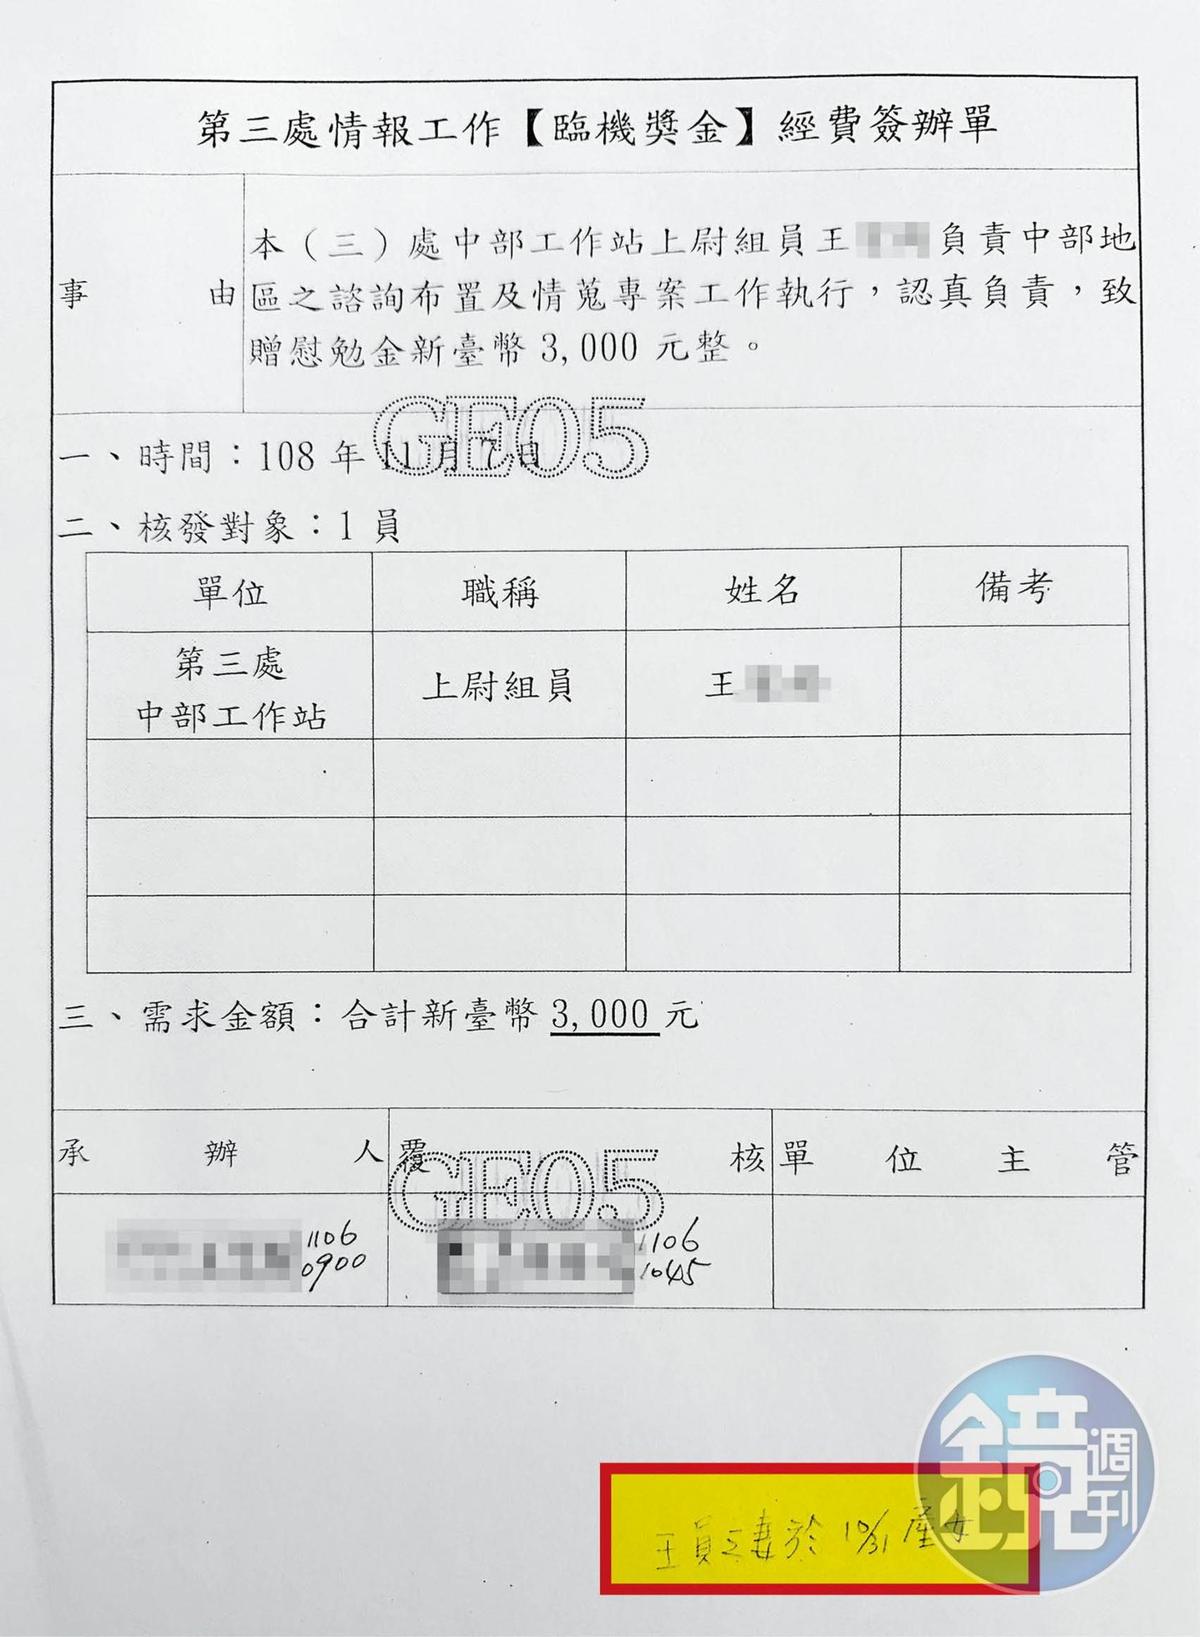 第三處情報工作【臨機獎金】經費簽辦單
事由
本（三）處中部工作站上尉組員王 負責中部地
區之諮詢布置及情蒐專案工作執行，認真負責，致
贈慰勉金新臺幣 3,000 元整。
GE05
一、時間：108 年 11 月 7 日
二、核發對象：1 員
單位 職稱 姓名 備考
第三處
中部工作站
上尉組員
王
三、需求金額：合計新臺幣 3,000 元
承辦人 覆核 單位主管
GE05
1106
0900
1106
1045
王員之妻於 10/31 產女
鏡週刊